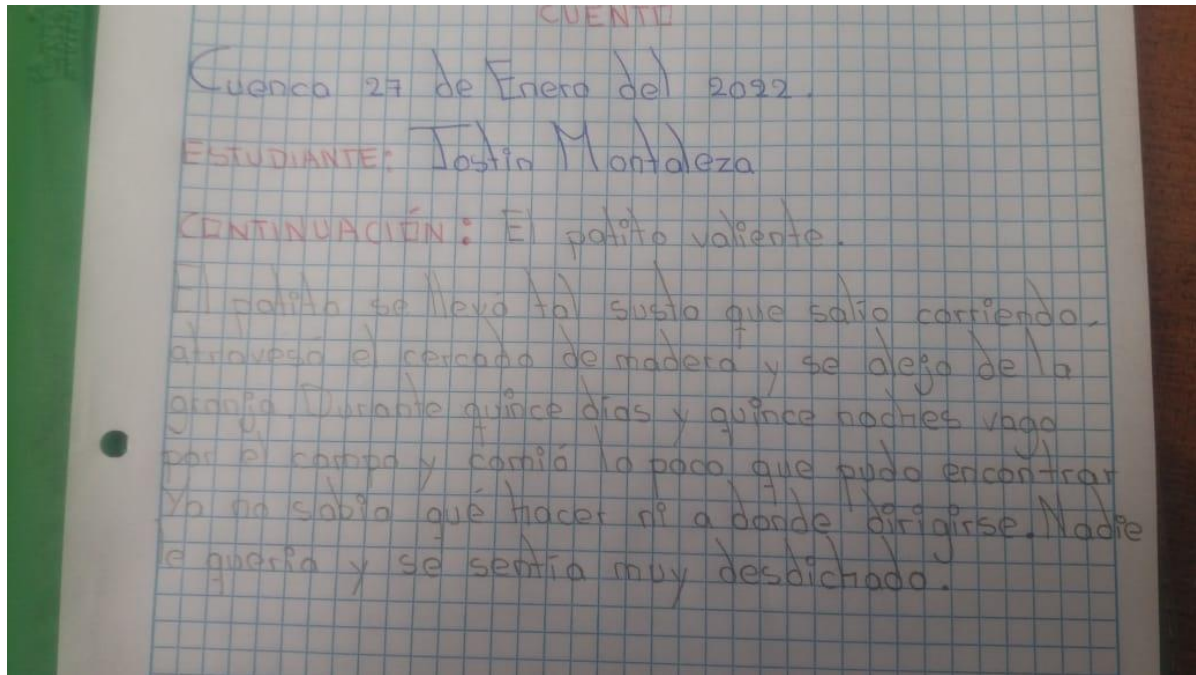 CUENTO
Cuenca 27 de Enero del 2022.
ESTUDIANTE: Jostin Montaleza
CONTINUACIÓN: El patito valiente.
El patito se llevó tal susto que salió corriendo,
atravesó el cercado de madera y se alejo de la
granja. Durante quince días y quince noches vago
por el campo y comió lo poco que pudo encontrar
Ya no sabia qué hacer ni a donde dirigirse. Nadie
le queria y se sentía muy desdichado.